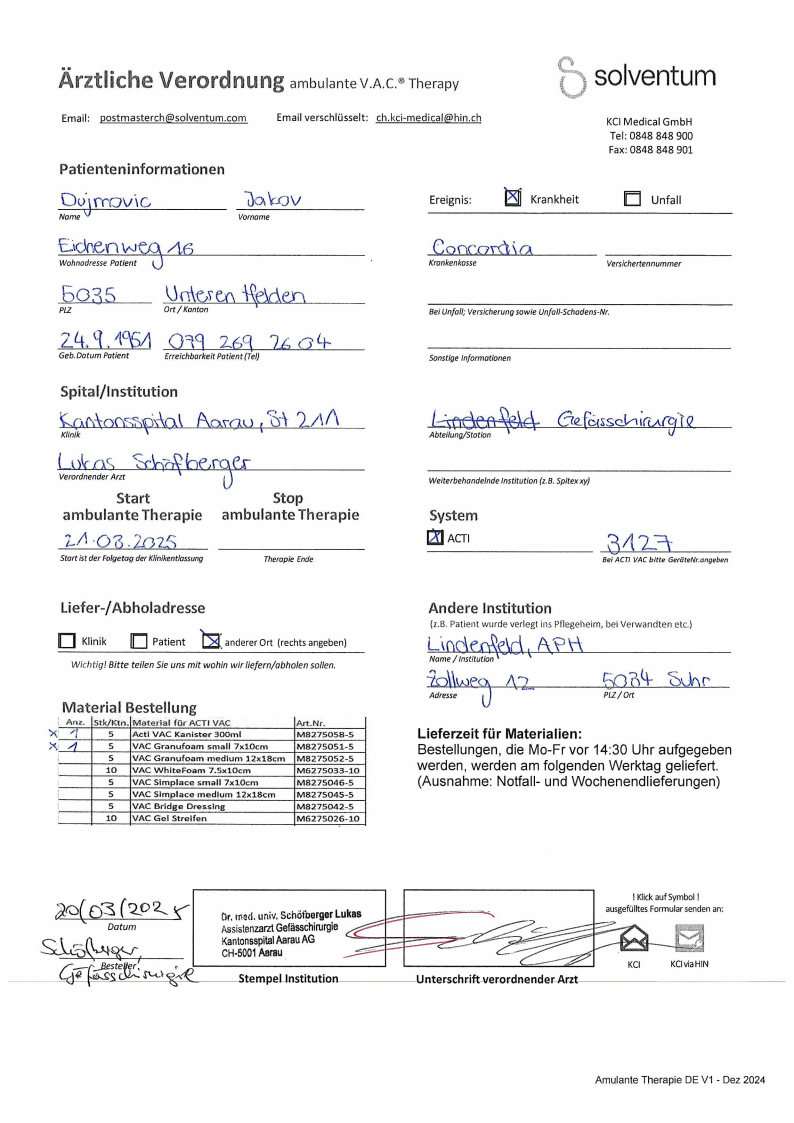 Ärztliche Verordnung ambulante V.A.C.® Therapy
solventum
Email: postmasterch@solventum.com Email verschlüsselt: ch.kci-medical@hin.ch
KCI Medical GmbH
Tel: 0848 848 900
Fax: 0848 848 901
Patienteninformationen
Dujmovic Jakov
Name Vorname
Ereignis: Krankheit Unfall
Eichenweg 16
Wohnadresse Patient
Concordia
Krankenkasse Versichertennummer
5035 Unteren Hfelden
PLZ Ort / Kanton
Bei Unfall; Versicherung sowie Unfall-Schadens-Nr.
24.9.1961 079 269 26 04
Geb.Datum Patient Erreichbarkeit Patient (Tel)
Sonstige Informationen
Spital/Institution
Kantonsspital Aarau, St 211
Klinik
Lindenfeld Gefässchirurgie
Abteilung/Station
Lukas Schöfberger
Verordnender Arzt
Weiterbehandelnde Institution (z.B. Spitex xy)
Start ambulante Therapie
Stop ambulante Therapie
21.03.2025
Start ist der Folgetag der Klinikentlassung Therapie Ende
System
ACTI 3127
Bei ACTI VAC bitte GeräteNr.angeben
Liefer-/Abholadresse
Klinik Patient anderer Ort (rechts angeben)
Wichtig! Bitte teilen Sie uns mit wohin wir liefern/abholen sollen.
Andere Institution
(z.B. Patient wurde verlegt ins Pflegeheim, bei Verwandten etc.)
Lindenfeld, APH
Name / Institution
Zollweg 12 5034 Suhr
Adresse PLZ / Ort
Material Bestellung
Anz. Stk/Ktn. Material für ACTI VAC Art.Nr.
x 1 5 Acti VAC Kanister 300ml M8275058-5
x 1 5 VAC Granufoam small 7x10cm M8275051-5
5 VAC Granufoam medium 12x18cm M8275052-5
10 VAC WhiteFoam 7.5x10cm M6275033-10
5 VAC Simplace small 7x10cm M8275046-5
5 VAC Simplace medium 12x18cm M8275045-5
5 VAC Bridge Dressing M8275042-5
10 VAC Gel Streifen M6275026-10
Lieferzeit für Materialien:
Bestellungen, die Mo-Fr vor 14:30 Uhr aufgegeben
werden, werden am folgenden Werktag geliefert.
(Ausnahme: Notfall- und Wochenendlieferungen)
20/03/2025
Datum
Schöfberger,
Besteller
Gefässchirurgie
Dr. med. univ. Schöfberger Lukas
Assistenzarzt Gefässchirurgie
Kantonsspital Aarau AG
CH-5001 Aarau
Stempel Institution
Unterschrift verordnender Arzt
! Klick auf Symbol !
ausgefülltes Formular senden an:
KCI KCI via HIN
Amulante Therapie DE V1 - Dez 2024